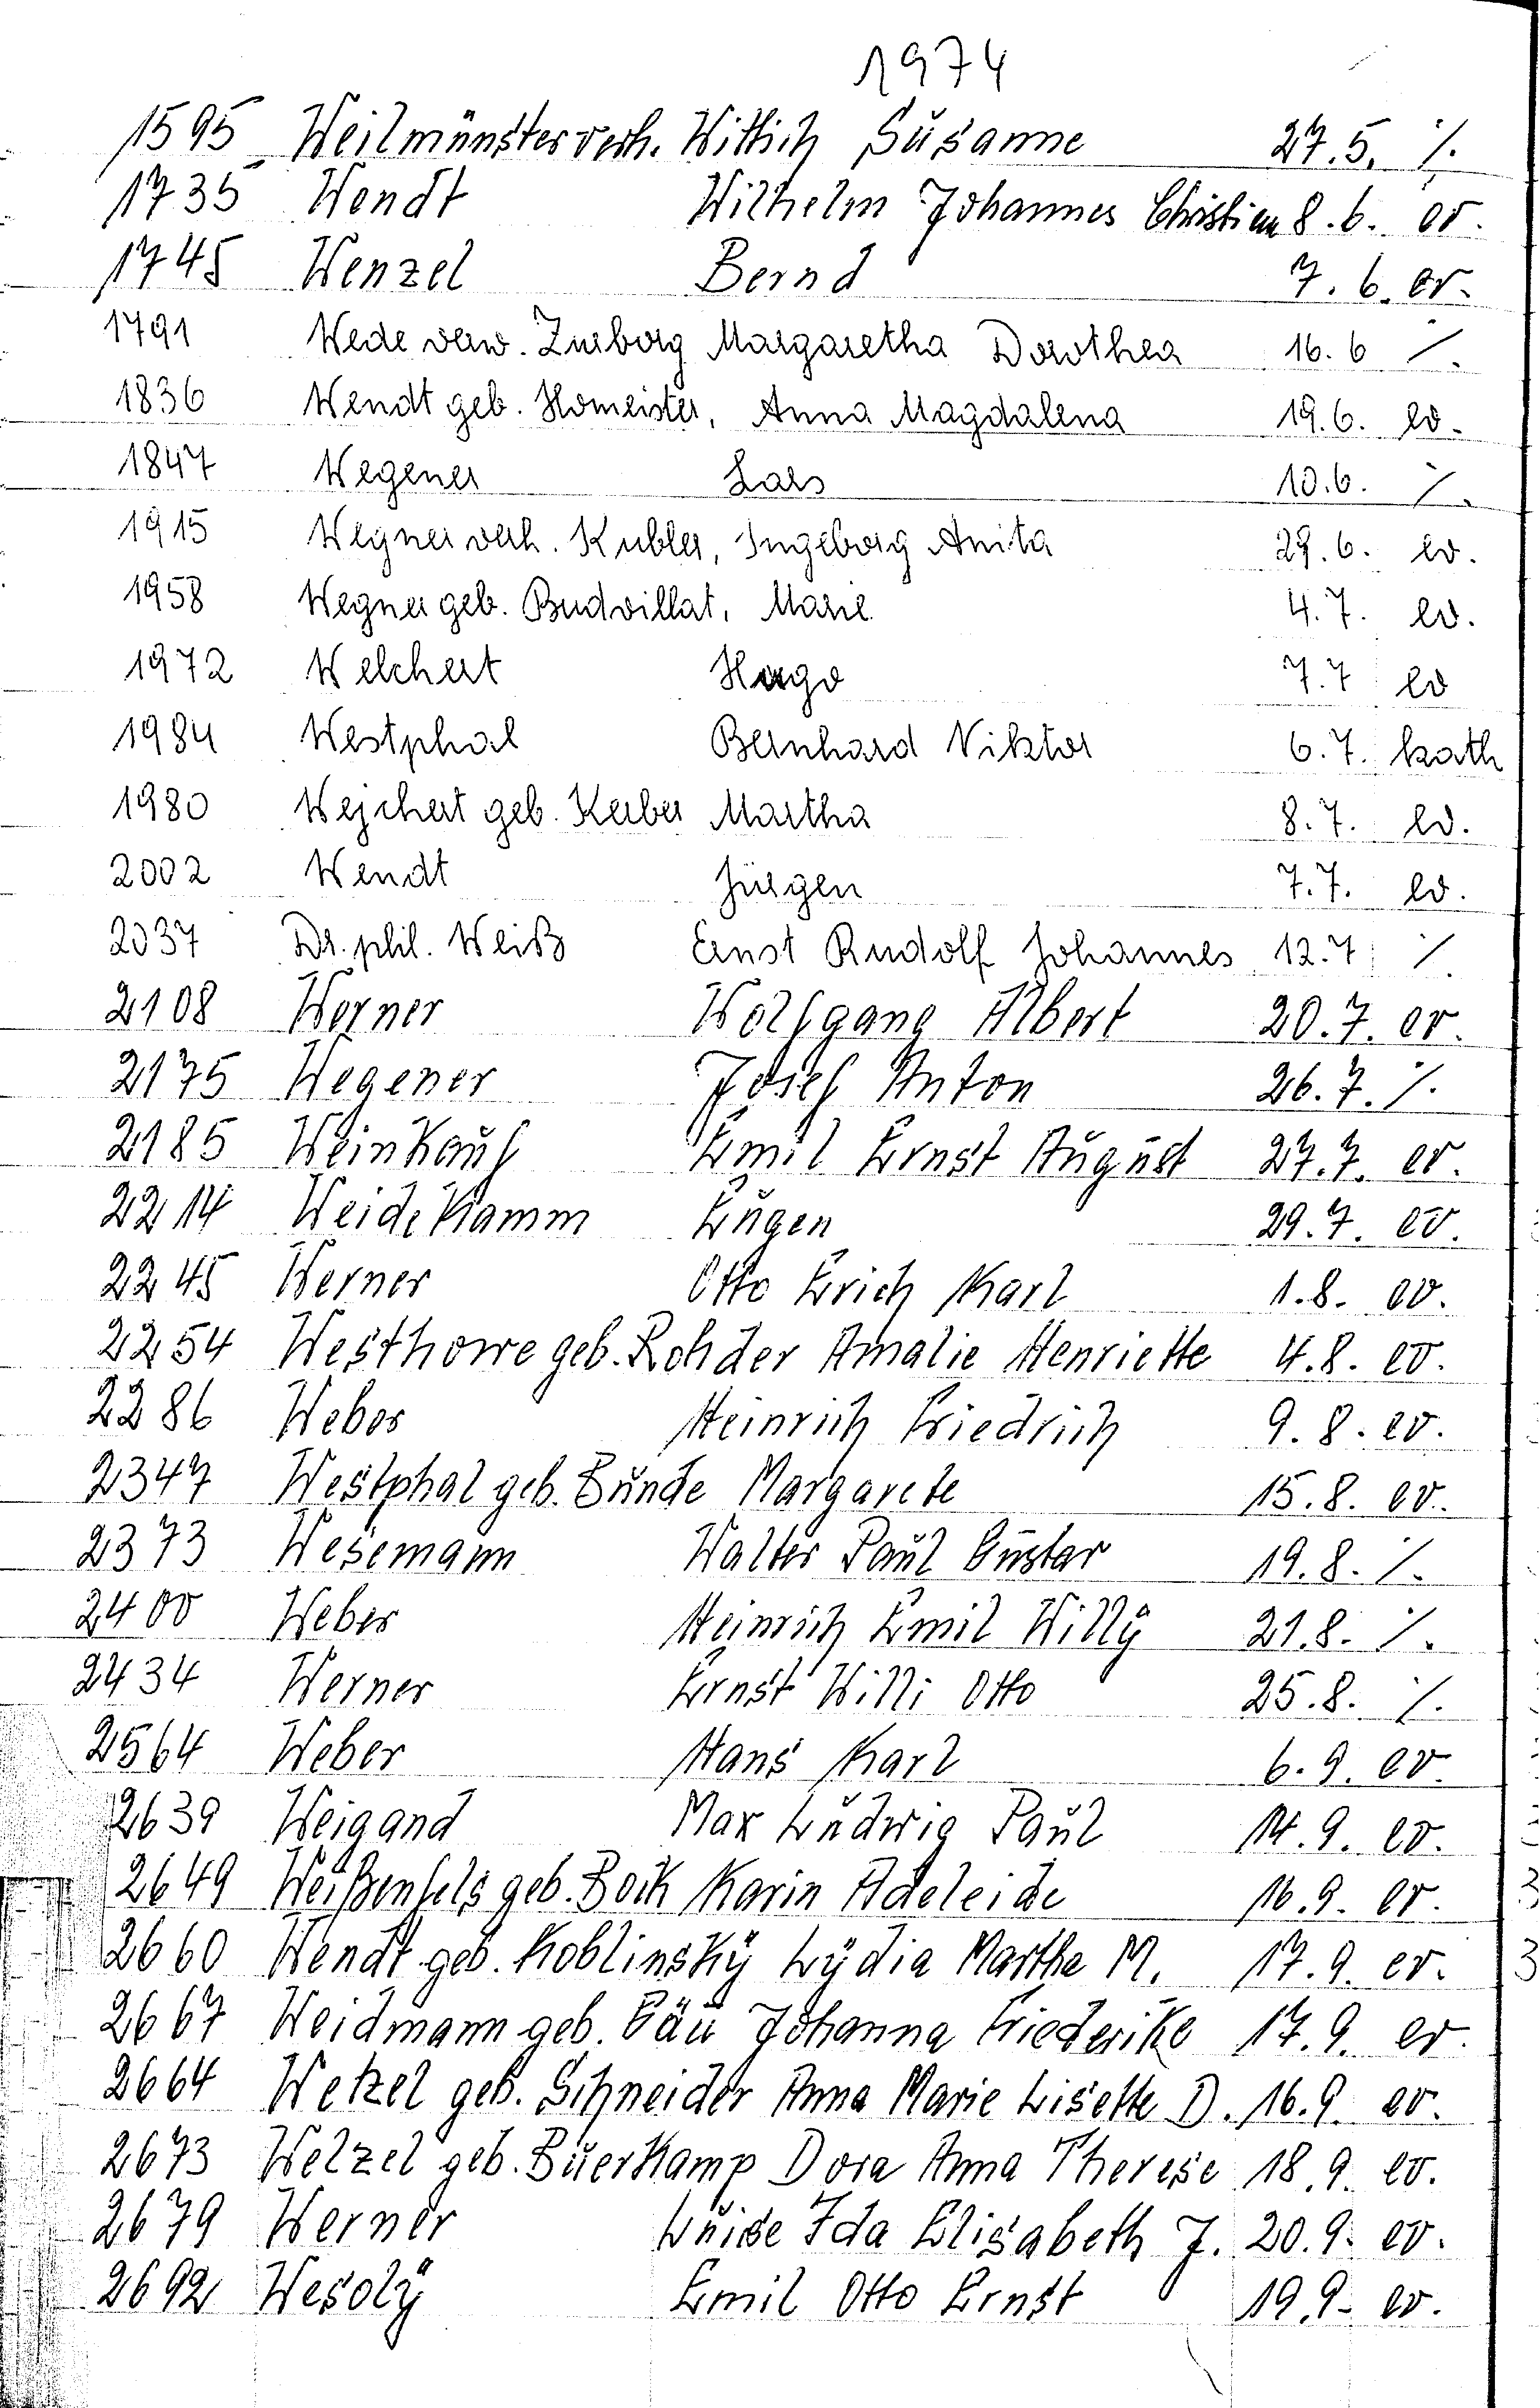 1974
1595 Weilmünster verh. Wittich Susanne 27.5. %.
1735 Wendt Wilhelm Johannes Christian 8.6. ev.
1745 Wenzel Bernd 7.6. ev.
1791 Wede verw. Zurborg Margaretha Dorothea 16.6 %.
1836 Wendt geb. Homeister, Anna Magdalena 19.6. ev.
1847 Wegener Lars 10.6. %.
1915 Wegner verh. Kubler, Ingeborg Anita 29.6. ev.
1958 Wegner geb. Budvillat, Marie 4.7. ev.
1972 Welchert Hugo 7.7 ev
1984 Westphal Bernhard Viktor 6.7. kath
1980 Wejchert geb. Kerber Martha 8.7. ev.
2002 Wendt Jürgen 7.7. ev.
2037 Dr. phil. Weiß Ernst Rudolf Johannes 12.7 %.
2108 Werner Wolfgang Albert 20.7. ev.
2175 Wegener Josef Anton 26.7. %.
2185 Weinkauf Emil Ernst August 27.7. ev.
2214 Weidekamm Eugen 29.7. ev.
2245 Werner Otto Erich Karl 1.8. ev.
2254 Westhowe geb. Rohder Amalie Henriette 4.8. ev.
2286 Weber Heinrich Friedrich 9.8. ev.
2347 Westphal geb. Bunde Margarete 15.8. ev.
2373 Wesemann Walter Paul Gustav 19.8. %.
2400 Weber Heinrich Emil Willy 21.8. %.
2434 Werner Ernst Willi Otto 25.8. %.
2564 Weber Hans Karl 6.9. ev.
2639 Weigand Max Ludwig Paul 14.9. ev.
2649 Weißenfels geb. Bock Karin Adeleide 16.9. ev.
2660 Wendt geb. Koblinsky Lydia Martha M. 17.9. ev.
2667 Weidmann geb. Gäu Johanna Friederike 17.9. ev.
2664 Wetzel geb. Schneider Anna Marie Lisette D. 16.9. ev.
2673 Welzel geb. Buerkamp Dora Anna Therese 18.9. ev.
2679 Werner Luise Ida Elisabeth J. 20.9. ev.
2692 Wesoly Emil Otto Ernst 19.9. ev.